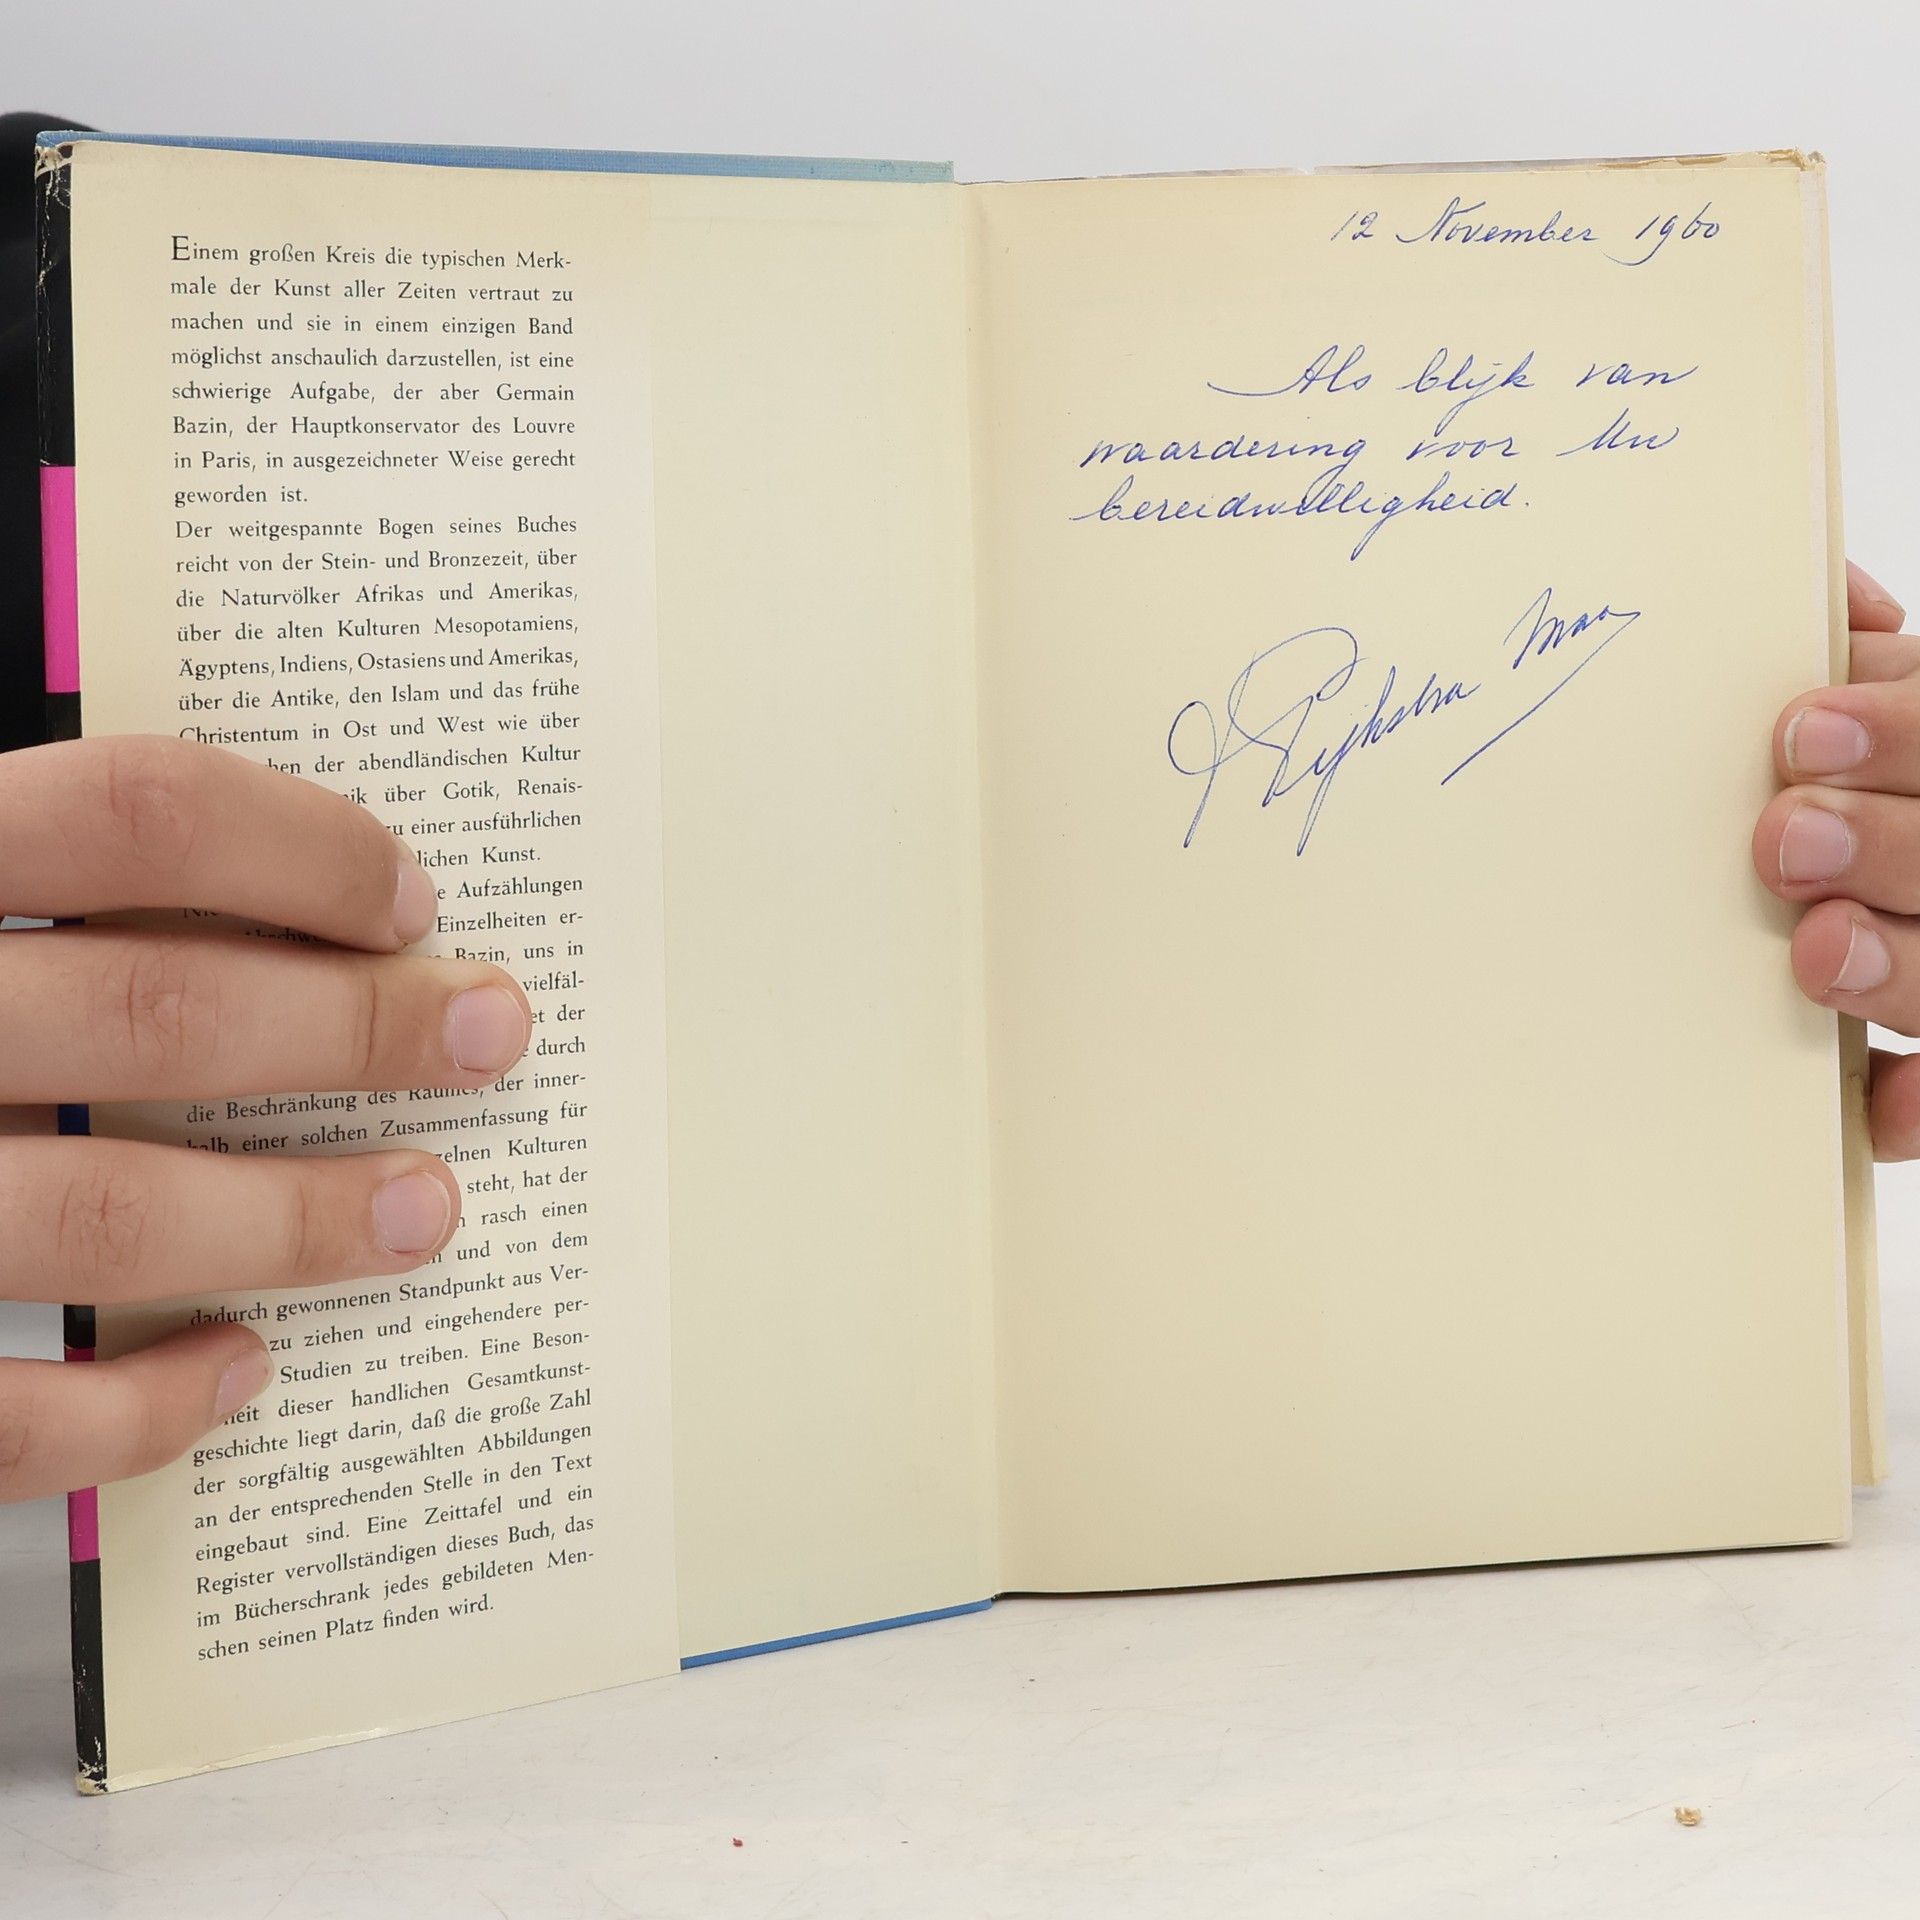 Einem großen Kreis die typischen Merk-
male der Kunst aller Zeiten vertraut zu
machen und sie in einem einzigen Band
möglichst anschaulich darzustellen, ist eine
schwierige Aufgabe, der aber Germain
Bazin, der Hauptkonservator des Louvre
in Paris, in ausgezeichneter Weise gerecht
geworden ist.
Der weitgespannte Bogen seines Buches
reicht von der Stein- und Bronzezeit, über
die Naturvölker Afrikas und Amerikas,
über die alten Kulturen Mesopotamiens,
Ägyptens, Indiens, Ostasiens und Amerikas,
über die Antike, den Islam und das frühe
Christentum in Ost und West wie über
der abendländischen Kultur
über Gotik, Renais-
einer ausführlichen
Kunst.
Aufzählungen
Einzelheiten er-
Bazin, uns in
vielfäl-
der
durch
die Beschränkung des Raumes, der inner-
einer solchen Zusammenfassung für
Kulturen
steht, hat der
rasch einen
und von dem
dadurch gewonnenen Standpunkt aus Ver-
zu ziehen und eingehendere per-
Studien zu treiben. Eine Beson-
dieser handlichen Gesamtkunst-
geschichte liegt darin, daß die große Zahl
der sorgfältig ausgewählten Abbildungen
an der entsprechenden Stelle in den Text
eingebaut sind. Eine Zeittafel und ein
Register vervollständigen dieses Buch, das
im Bücherschrank jedes gebildeten Men-
schen seinen Platz finden wird.
12 November 1960
Als blijk van
waardering voor Uw
bereidwilligheid.